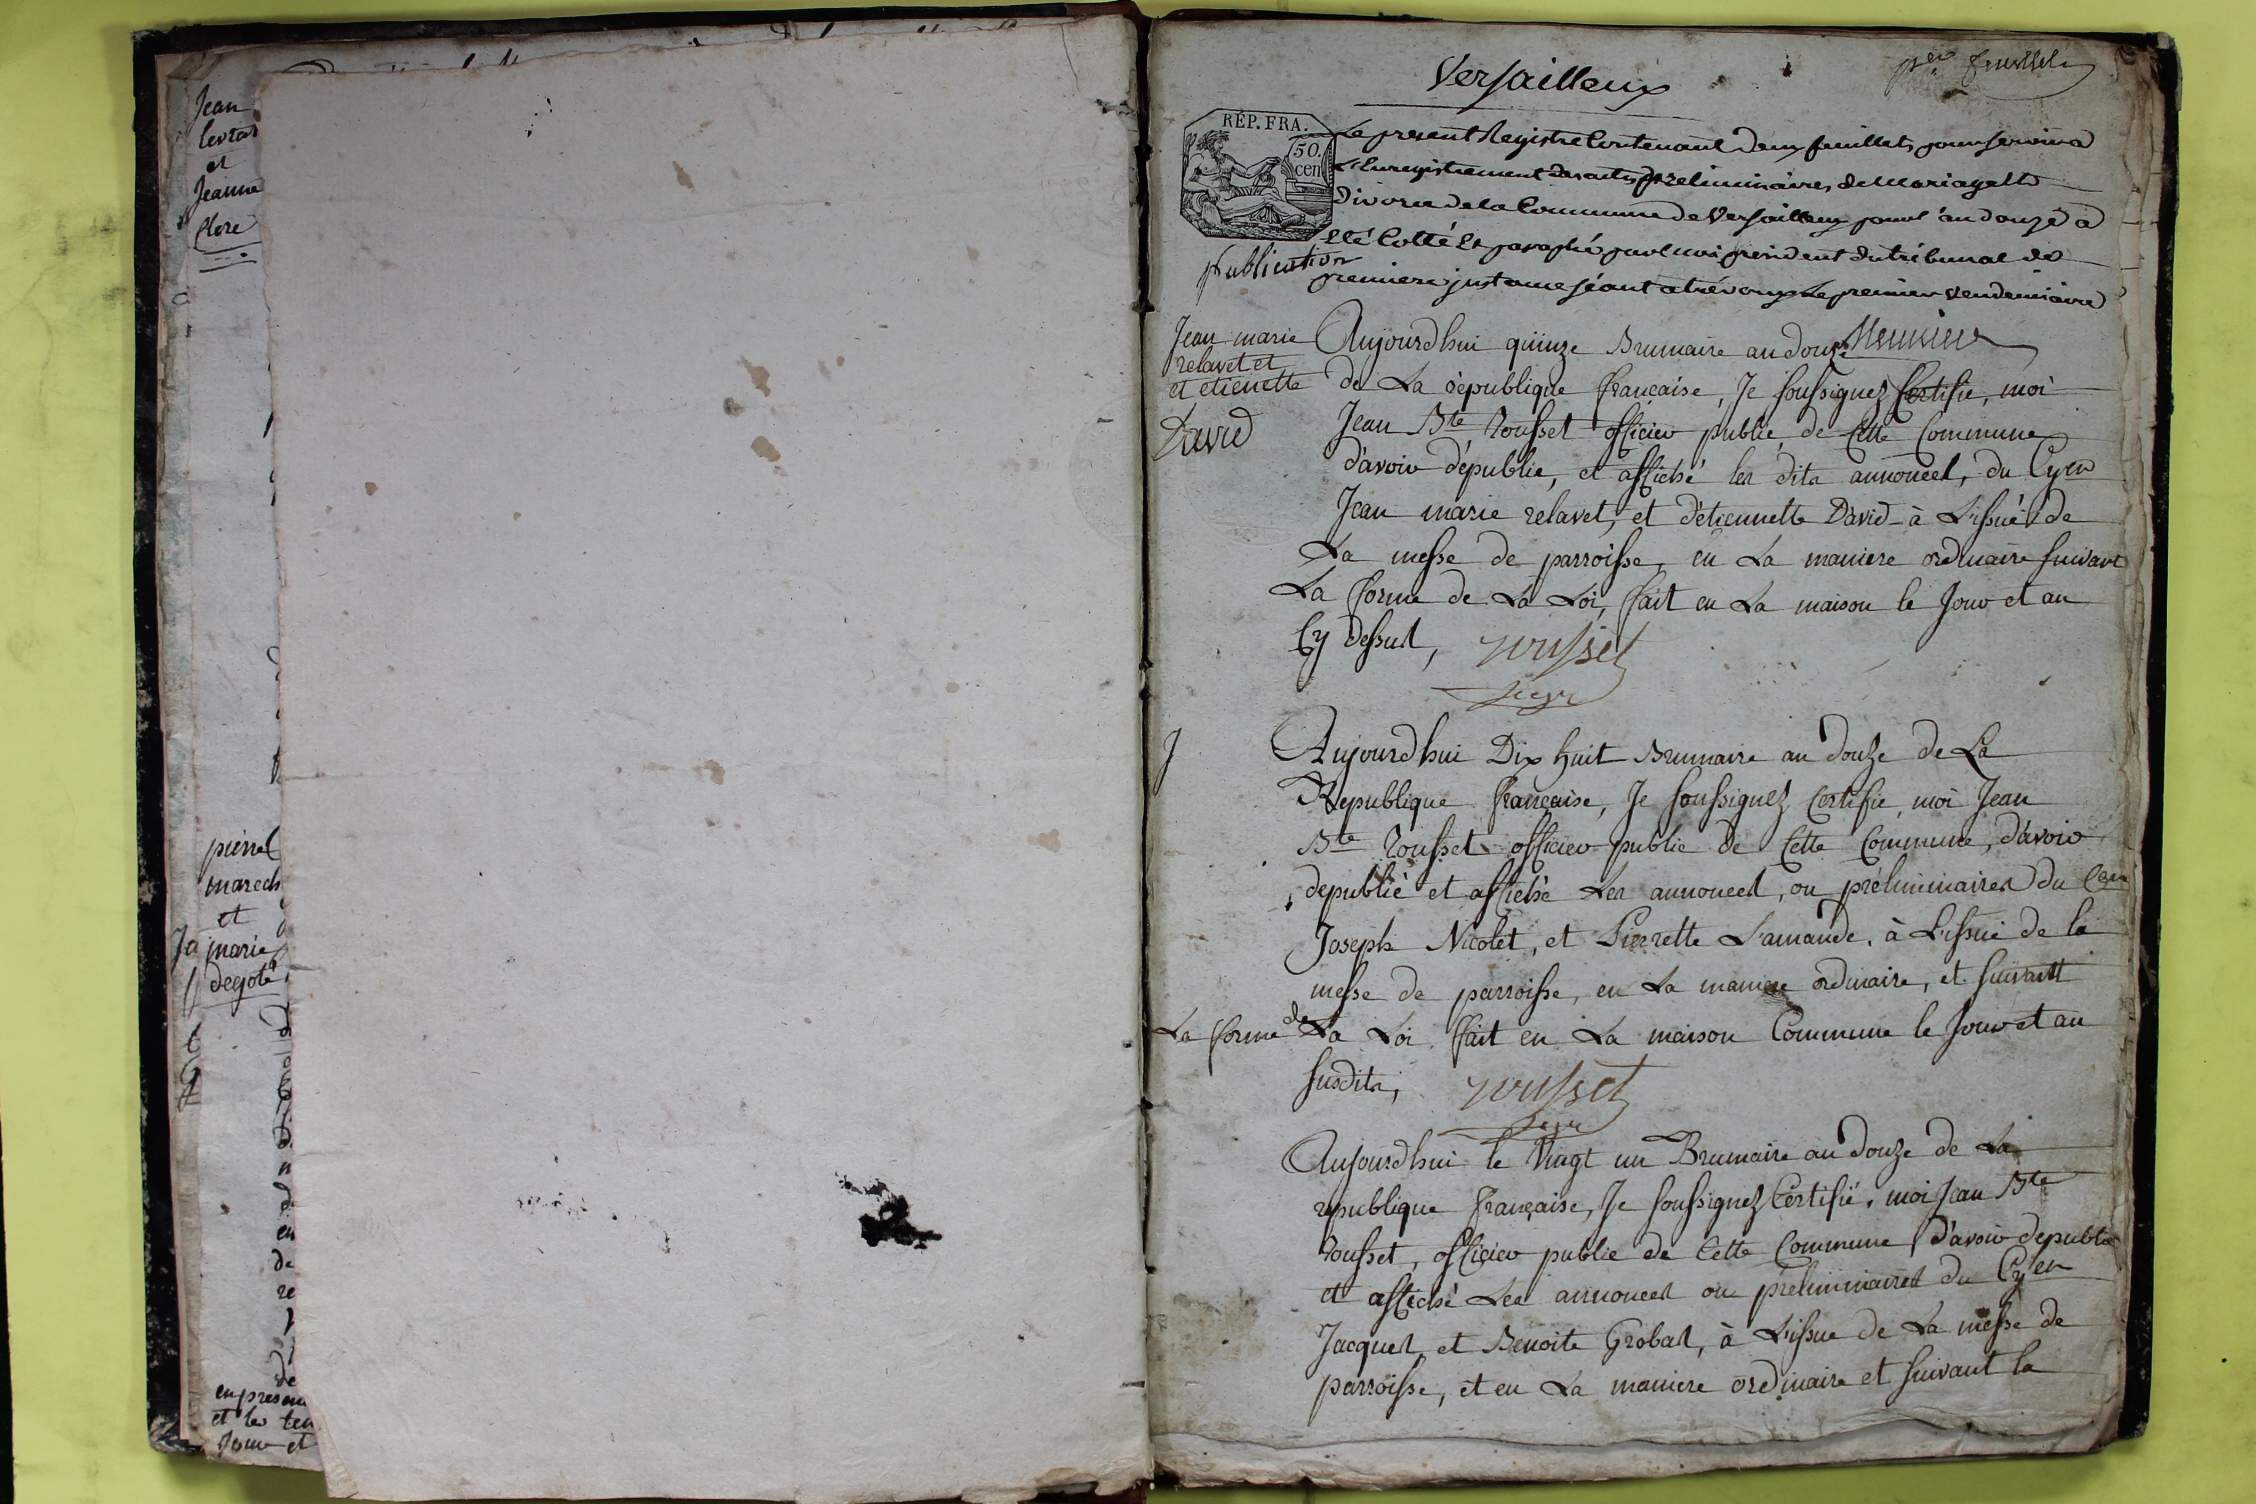 Jean
et
Jeanne
Clere
marie
degote
et les
Jour et
Versailleux
per feuillet
RÉP. FRA.
50.
cen
Le present Registre Contenant deux feuillets pour servir a
L'Enregistrement des actes préliminaires de Mariage et
Divorce de la Commune de Versailleux pour l'an douze a
Eté Cotté Et paraphé par Moi president du tribunal de
premiere jnstance séant a trévoux Le premier Vendemiaire
publication
Meunier
Jean marie
relavet et
et etienette
David
Aujourdhui quinze Brumaire an douze
de La république francaise, Je soussignez Certifie, moi
Jean Bte Rousset officier public de Cette Commune
d'avoir dépublié, et affiché les dits annonces, du Cyen
Jean marie relavet, et d'étiennette David à L'issué de
La messe de parroisse, en La maniere ordinaire suivant
La forme de La Loi, ffait en La maison le Jour et an
Cy dessus, rousset
Aujourdhui Dix huit Brumaire an douze de La
Republique française, Je soussignez Certifie moi Jean
Bte Rousset officier public de Cette Commune, d'avoir
depublié et affiché Les annonces, ou préliminaires du Cen
Joseph Nicolet, et Pierrette Lamande, à L'issué de la
messe de parroisse, en La maniere ordinaire, et suivant
La forme de La Loi ffait en La maison Commune le Jour et an
susdits, rousset
Aujourdhui le Vingt un Brumaire an douze de La
republique française, Je soussignez Certifié, moi Jean Bte
Rousset, officier public de Cette Commune d'avoir depublié
et affiché Les annonces ou préliminaires du Cyen
Jacques, et Benoite Grobas, à L'issue de La messe de
parroisse, et en La maniere ordinaire et suivant la